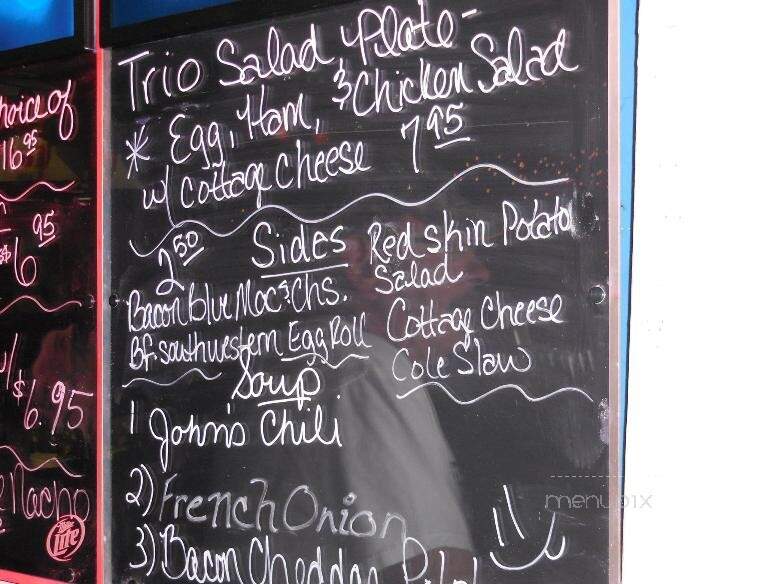 hoice of
16 95
95
$6
w/
$6.95
Nacho
Lite
Trio Salad Plate -
* Egg, Ham, & Chicken Salad
w/ Cottage Cheese 7 95
2 50 Sides Redskin Potato
Salad
Bacon Blue Mac & Chs.
Cottage Cheese
Bf. Southwestern Egg Roll
Cole Slaw
Soup
1 John's Chili
2) French Onion
3) Bacon Cheddar
menupix